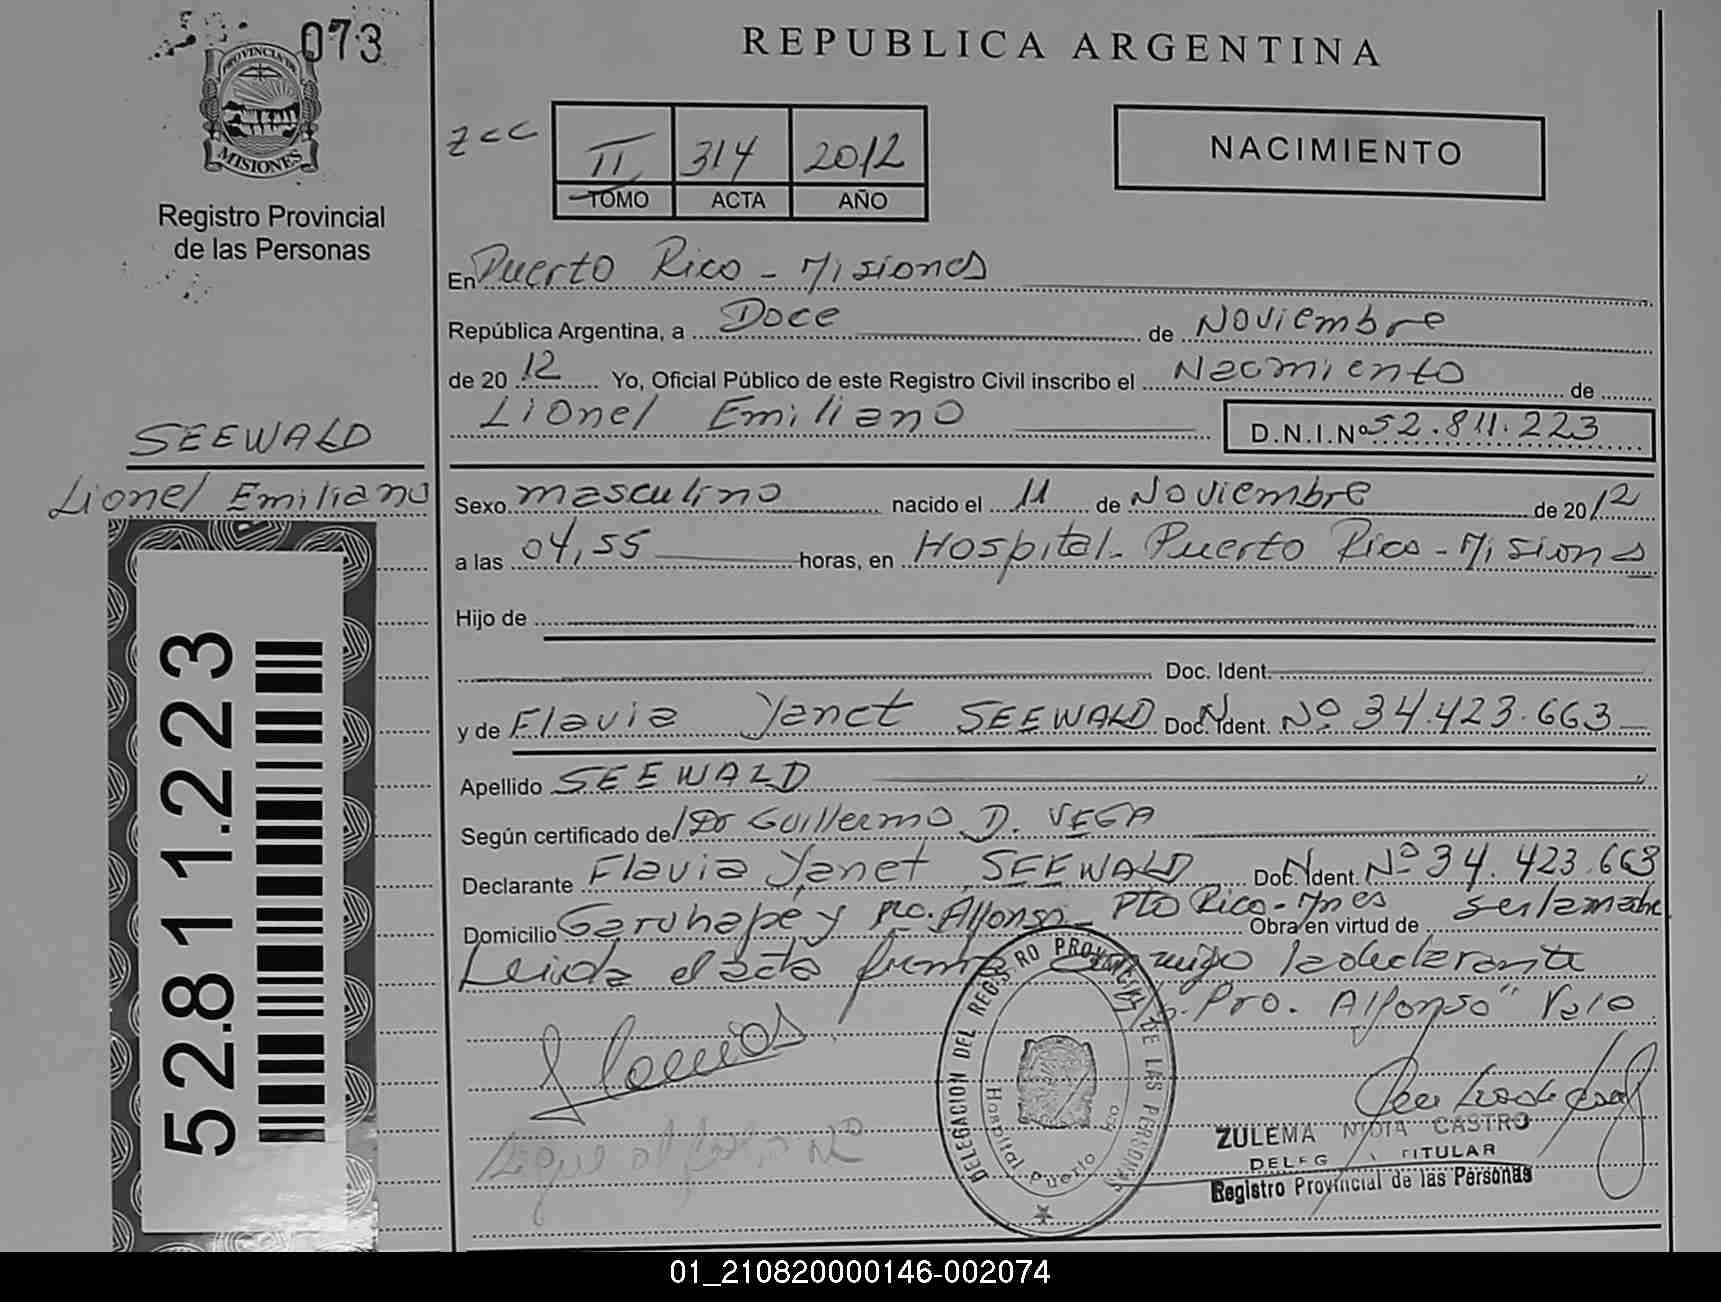 073
PROVINCIA DE
MISIONES
Registro Provincial
de las Personas
SEEWALD
Lionel Emiliano
52.811.223
REPUBLICA ARGENTINA
II 314 2012
TOMO ACTA AÑO
NACIMIENTO
En Puerto Rico - Misiones
República Argentina, a Doce de Noviembre
de 20 12 Yo, Oficial Público de este Registro Civil inscribo el Nacimiento de
Lionel Emiliano D.N.I.Nº 52.811.223
Sexo masculino nacido el 11 de Noviembre de 2012
a las 04,55 horas, en Hospital - Puerto Rico - Misiones
Hijo de
Doc. Ident.
y de Flavia Yanet SEEWALD Doc. Ident. Nº 34.423.663
Apellido SEEWALD
Según certificado de Dr Guillermo D. VEGA
Declarante Flavia Yanet SEEWALD Doc. Ident. Nº 34.423.663
Domicilio Garuhape y Pro. Alfonso - Pto Rico - Mnes Obra en virtud de ser la madre
Leida el acta frente conmigo la declarante
Pro. Alfonso" Vale
DELEGACION DEL REGISTRO PROVINCIAL DE LAS PERSONAS
Hospital Puerto Rico
ZULEMA NIDIA CASTRO
DELEG TITULAR
Registro Provincial de las Personas
01_210820000146-002074